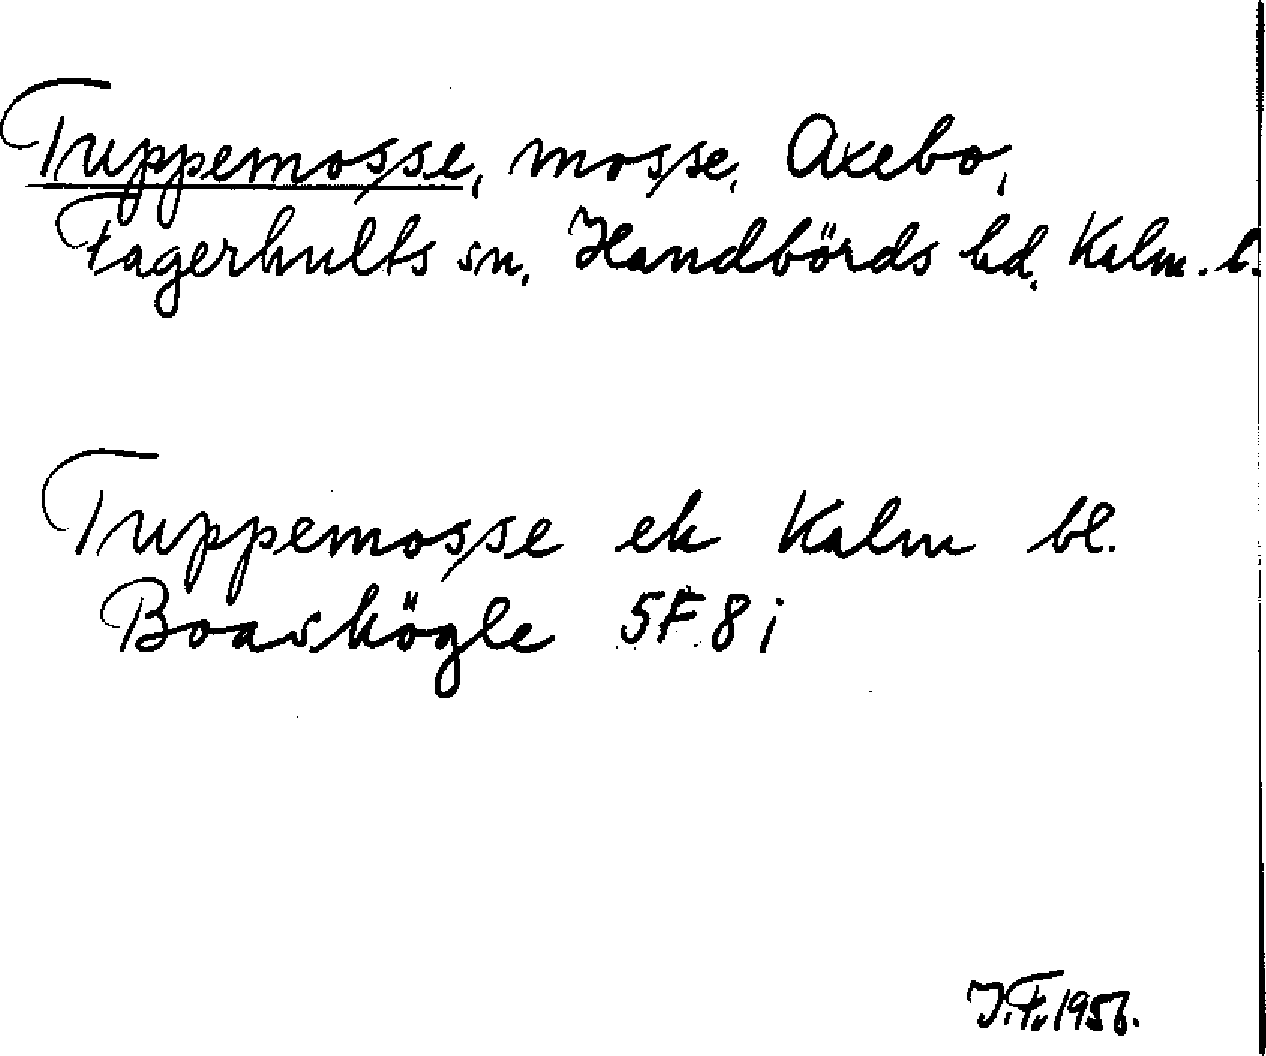 Tuppemosse, mosse, Axebo,
Fagerhults sn, Handbörds hd, Kalm. l.
Tuppemosse ek Kalm bl.
Boaskögle 5F 8i
J.F. 1956.